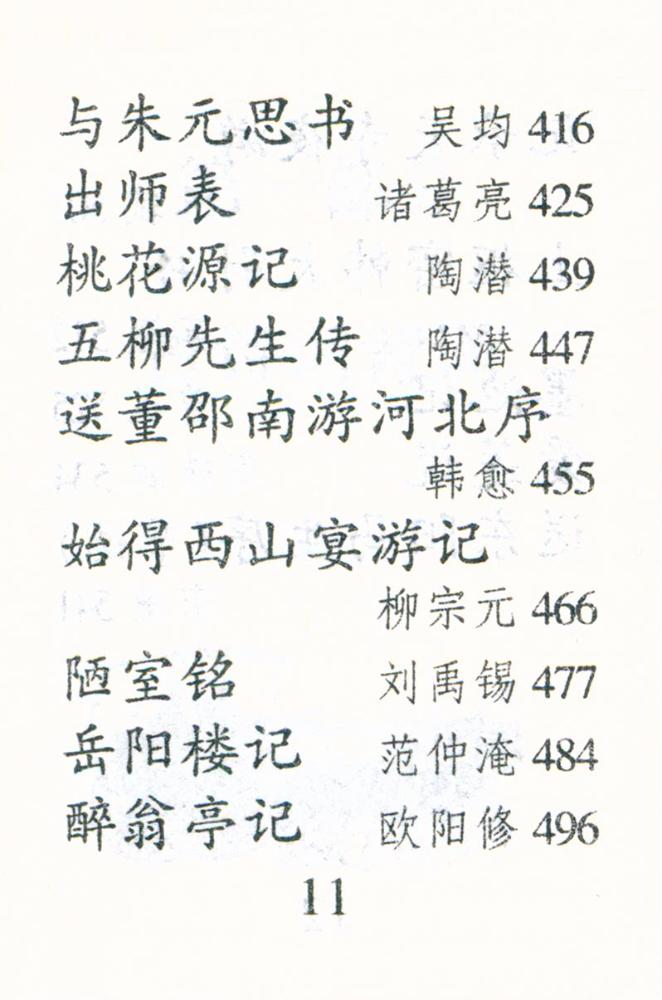 与朱元思书 吴均 416
出师表 诸葛亮 425
桃花源记 陶潜 439
五柳先生传 陶潜 447
送董邵南游河北序
韩愈 455
始得西山宴游记
柳宗元 466
陋室铭 刘禹锡 477
岳阳楼记 范仲淹 484
醉翁亭记 欧阳修 496
11